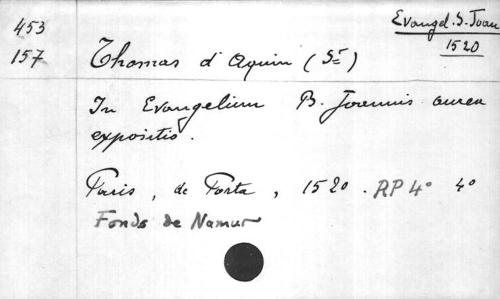 453
157
Evangel. S. Joan
1520
Thomas d'Aquin (St)
In Evangelium B. Joannis aurea
expositio.
Paris, de Porta, 1520. RP 4° 4°
Fonds de Namur